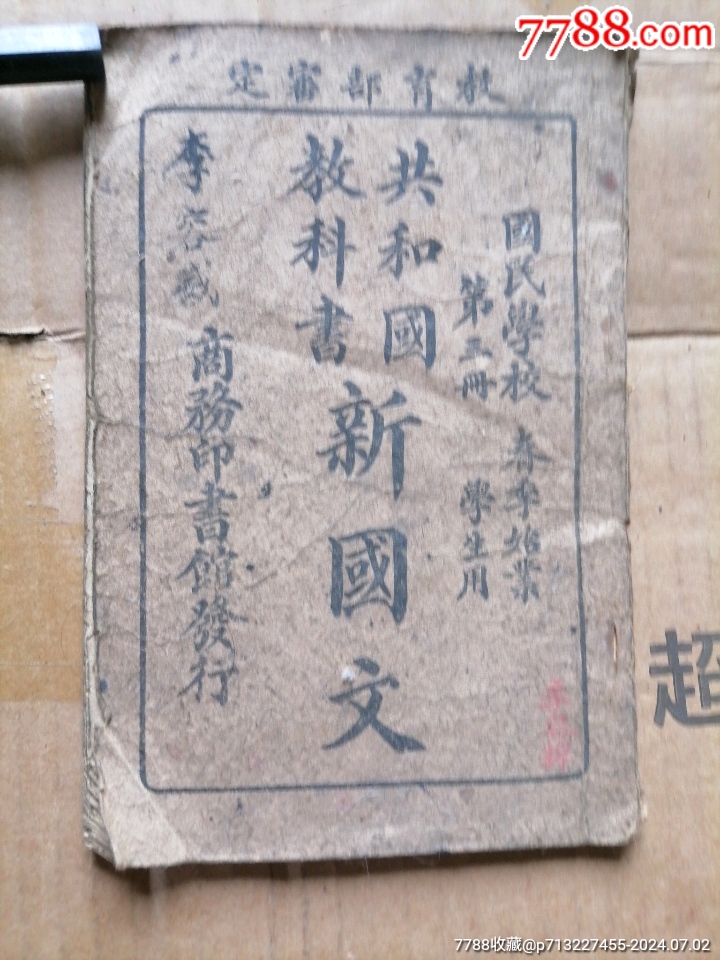 7788.com
教育部審定
國民學校 春季始業
第五冊 學生用
共和國
教科書
新國文
李容藏
商務印書館發行
超
7788收藏@p713227455-2024.07.02